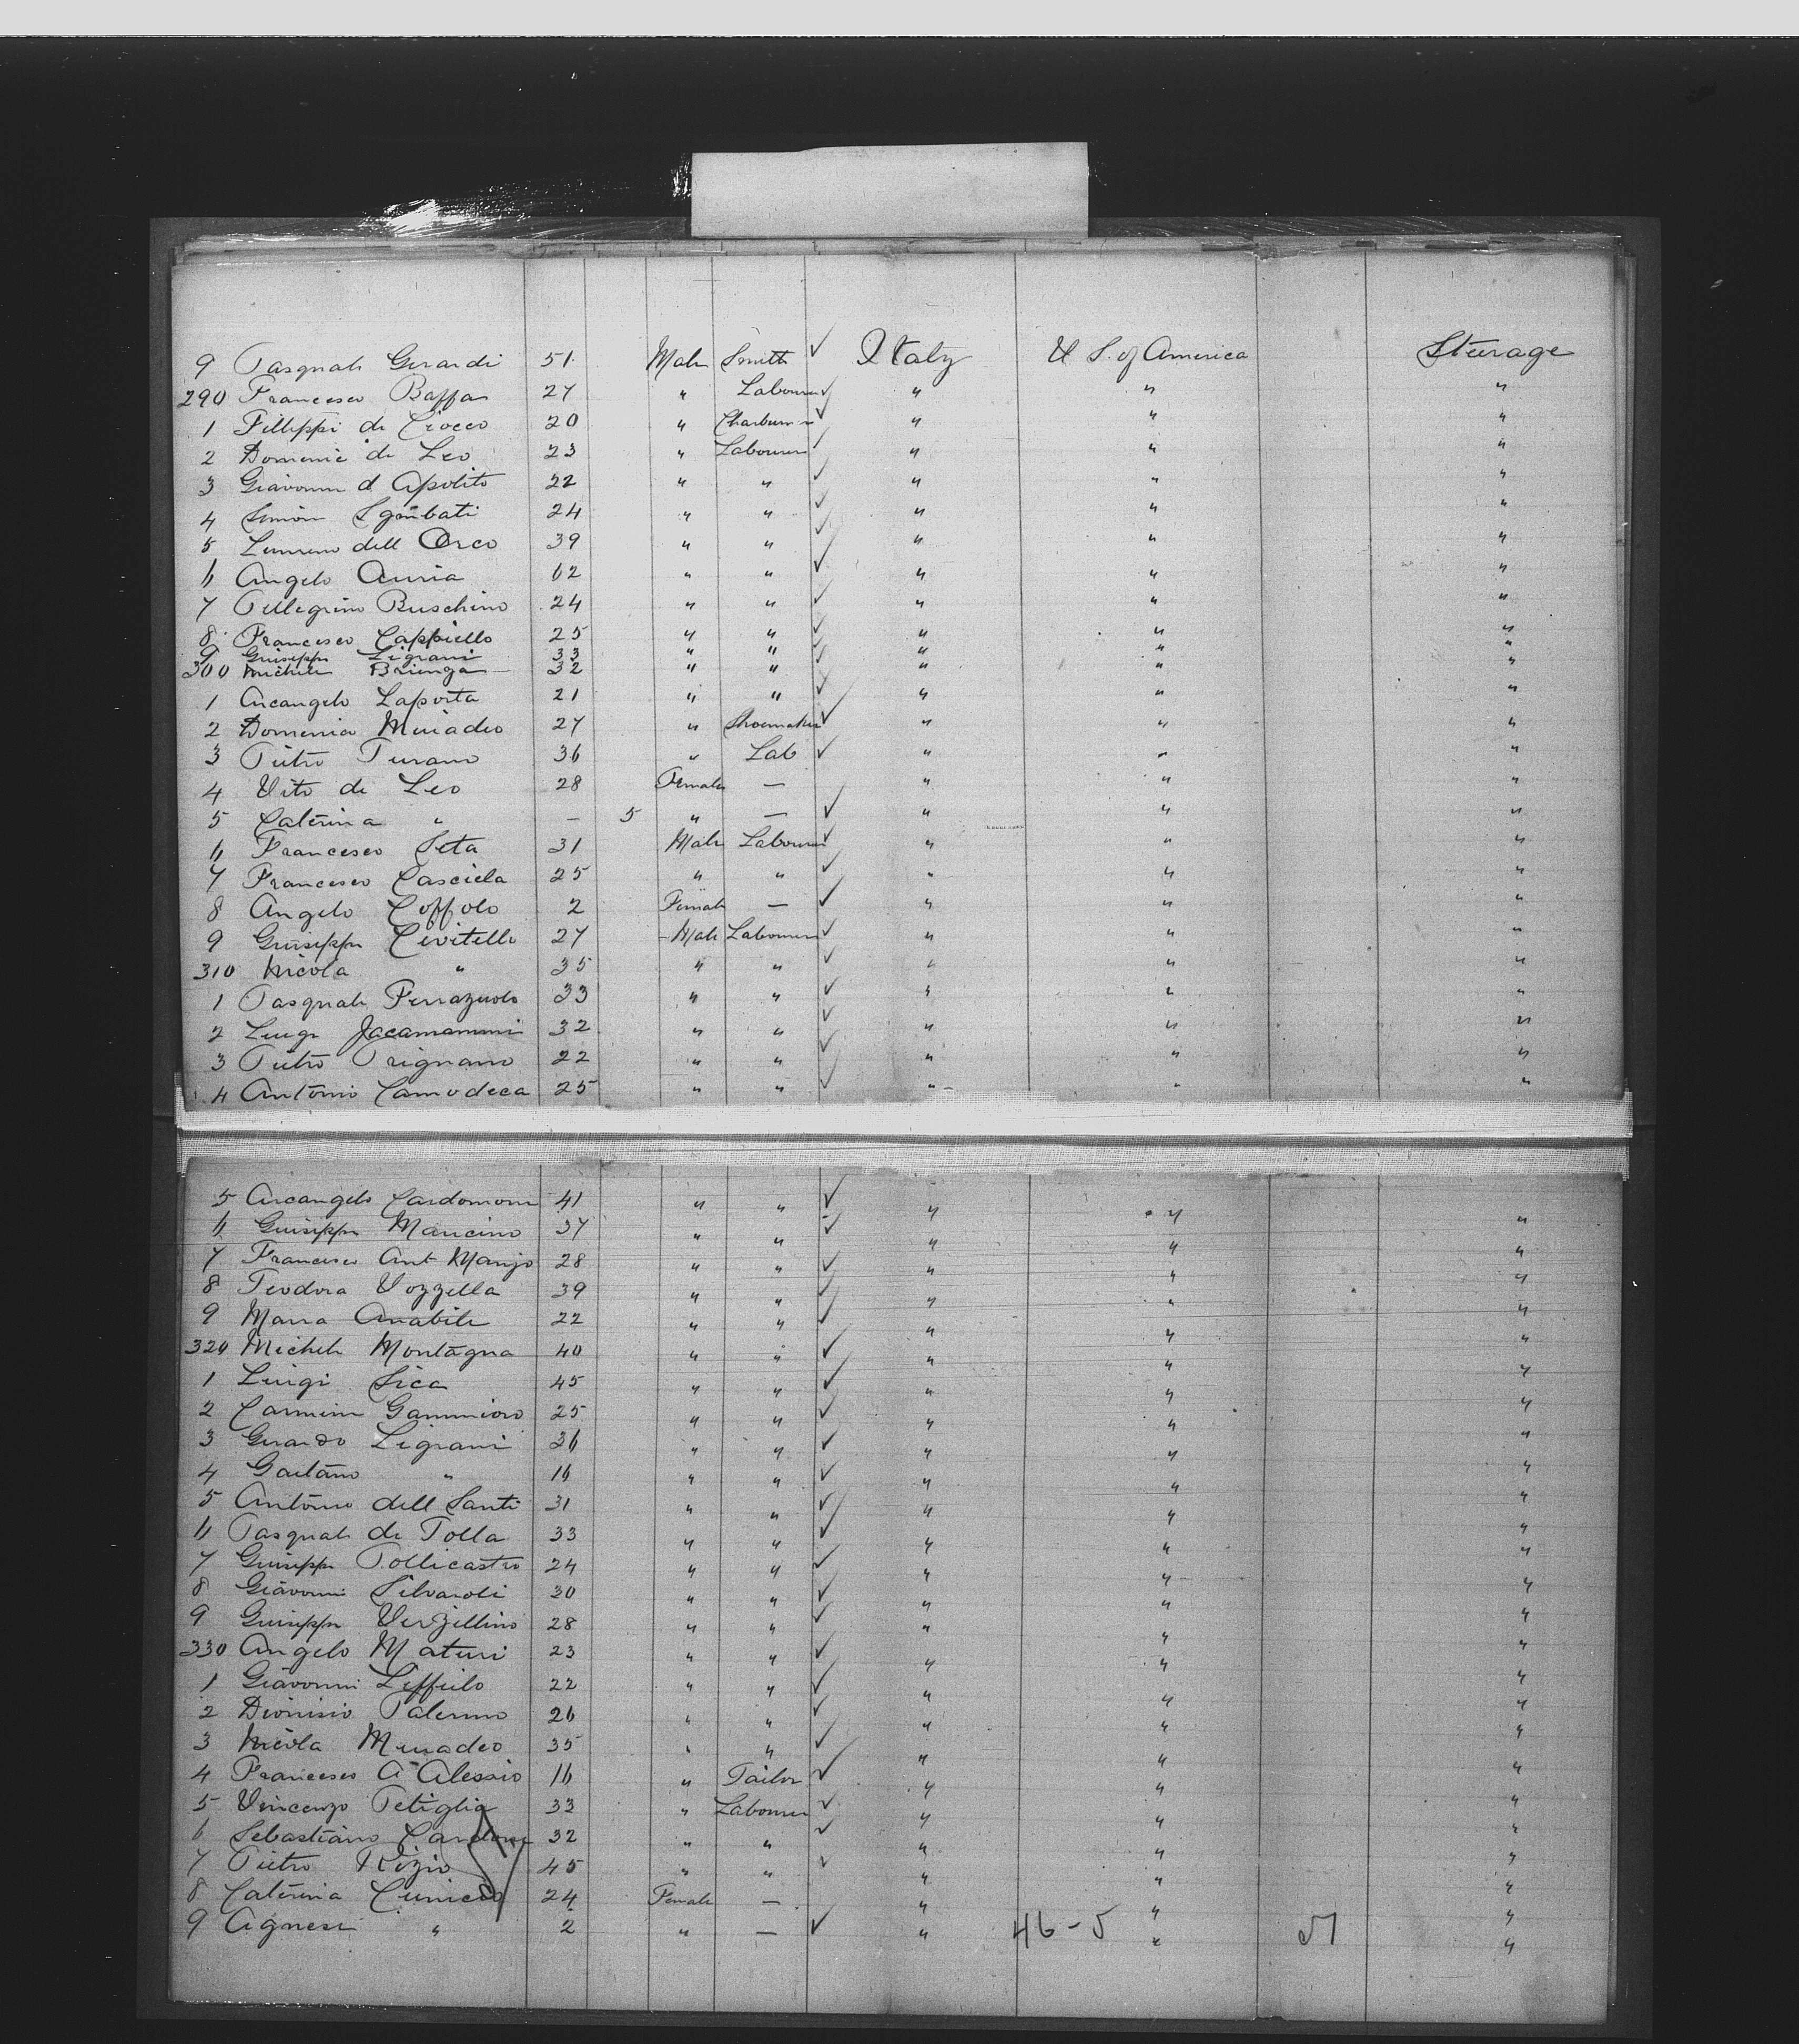 9 Pasquale Gerardi 51 Male Smith ✓ Italy U S. of America Steerage
290 Francesco Baffa 27 " Labourer ✓ " " "
1 Fillippi di Ciocco 20 " ✓ " " "
2 Domenic di Leo 23 " Labourer ✓ " " "
3 Giavonni d Apolito 22 " " ✓ " " "
4 Simon Sgambati 24 " " ✓ " " "
5 dell Orco 39 " " ✓ " " "
6 Angelo Auria 62 " " ✓ " " "
7 Pellegrino Buschino 24 " " ✓ " " "
8 Francesco Cappiello 25 " " ✓ " " "
9 Guiseppe Ligrani 33 " " ✓ " " "
300 Michele Brienga 32 " " " " "
1 Arcangelo Laporta 21 " " ✓ " " "
2 Domenia Muiadeo 27 " Shoemaker ✓ " " "
3 Pietro Turano 36 " Lab ✓ " " "
4 Vito di Leo 28 Female — " " "
5 Caterina " — 5 " — ✓ " " "
6 Francesco Seta 31 Male Labourer ✓ " " "
7 Francesco Casciela 25 " " ✓ " " "
8 Angelo Coffolo 2 Female — ✓ " " "
9 Guiseppe Civitello 27 Male Labourer ✓ " " "
310 Nicola " 35 " " ✓ " " "
1 Pasquale Ferrazuolo 33 " " ✓ " " "
2 Luigi Jacamammi 32 " " ✓ " " "
3 Pietro Prignano 22 " " ✓ " " "
4 Antonio Camodeca 25 " " ✓ " " "
5 Arcangelo Cardomone 41 " " ✓ " " "
6 Guiseppe Mancino 37 " " ✓ " " "
7 Francesco Ant Manjo 28 " " ✓ " " "
8 Teodora Vozzella 39 " " ✓ " " "
9 Maria Amabile 22 " " ✓ " " "
320 Michele Montagna 40 " " ✓ " " "
1 Luigi Sica 45 " " ✓ " " "
2 Carmine Gammioro 25 " " ✓ " " "
3 Gerardo Ligrani 36 " " ✓ " " "
4 Gaetano " 16 " " ✓ " " "
5 Antonio dell Santi 31 " " ✓ " " "
6 Pasquale di Tolla 33 " " ✓ " " "
7 Guiseppe Pollicastro 24 " " ✓ " " "
8 Giavonni Silvaroli 30 " " ✓ " " "
9 Guiseppe Verzillino 28 " " ✓ " " "
330 Angelo Maturi 23 " " ✓ " " "
1 Giavonni Liffielo 22 " " ✓ " " "
2 Dionisio Palermo 26 " " ✓ " " "
3 Nicola Muiadeo 35 " " ✓ " " "
4 Francesco A Alessio 16 " Tailor ✓ " " "
5 Vincenzo Petiglia 33 " Labourer ✓ " " "
6 Sebastiano Cardone 32 " " ✓ " " "
7 Pietro Rizio 45 " " ✓ " " "
8 Caterina Cunicco 24 Female — " " "
9 Agnese " 2 " — ✓ " 46-5 " 51 "